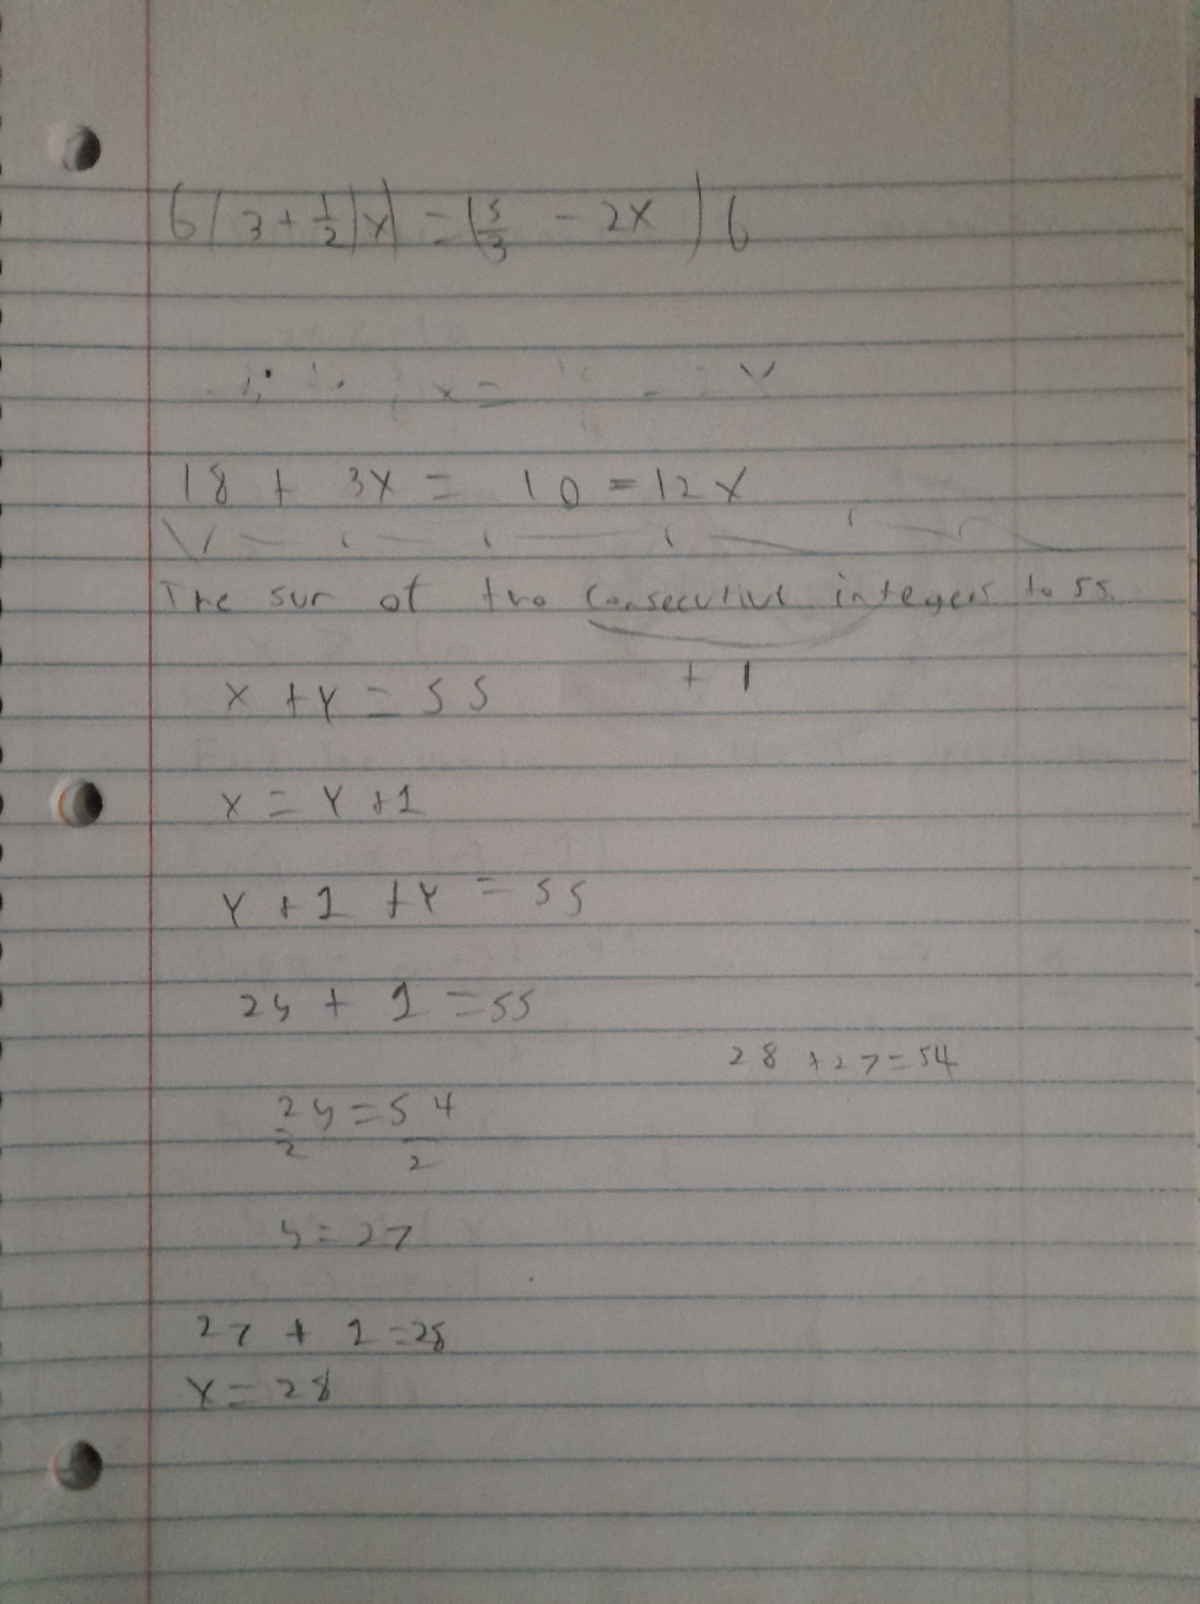 6(3+1/2)x) = (5/3 - 2x)6
x =
18 + 3x = 10 = 12x
The sum of two consecutive integers to 55.
+ 1
x + y = 55
x = y + 1
y + 1 + y = 55
2y + 1 = 55
28 + 27 = 54
2y = 54
2 2
y = 27
27 + 1 = 28
x = 28